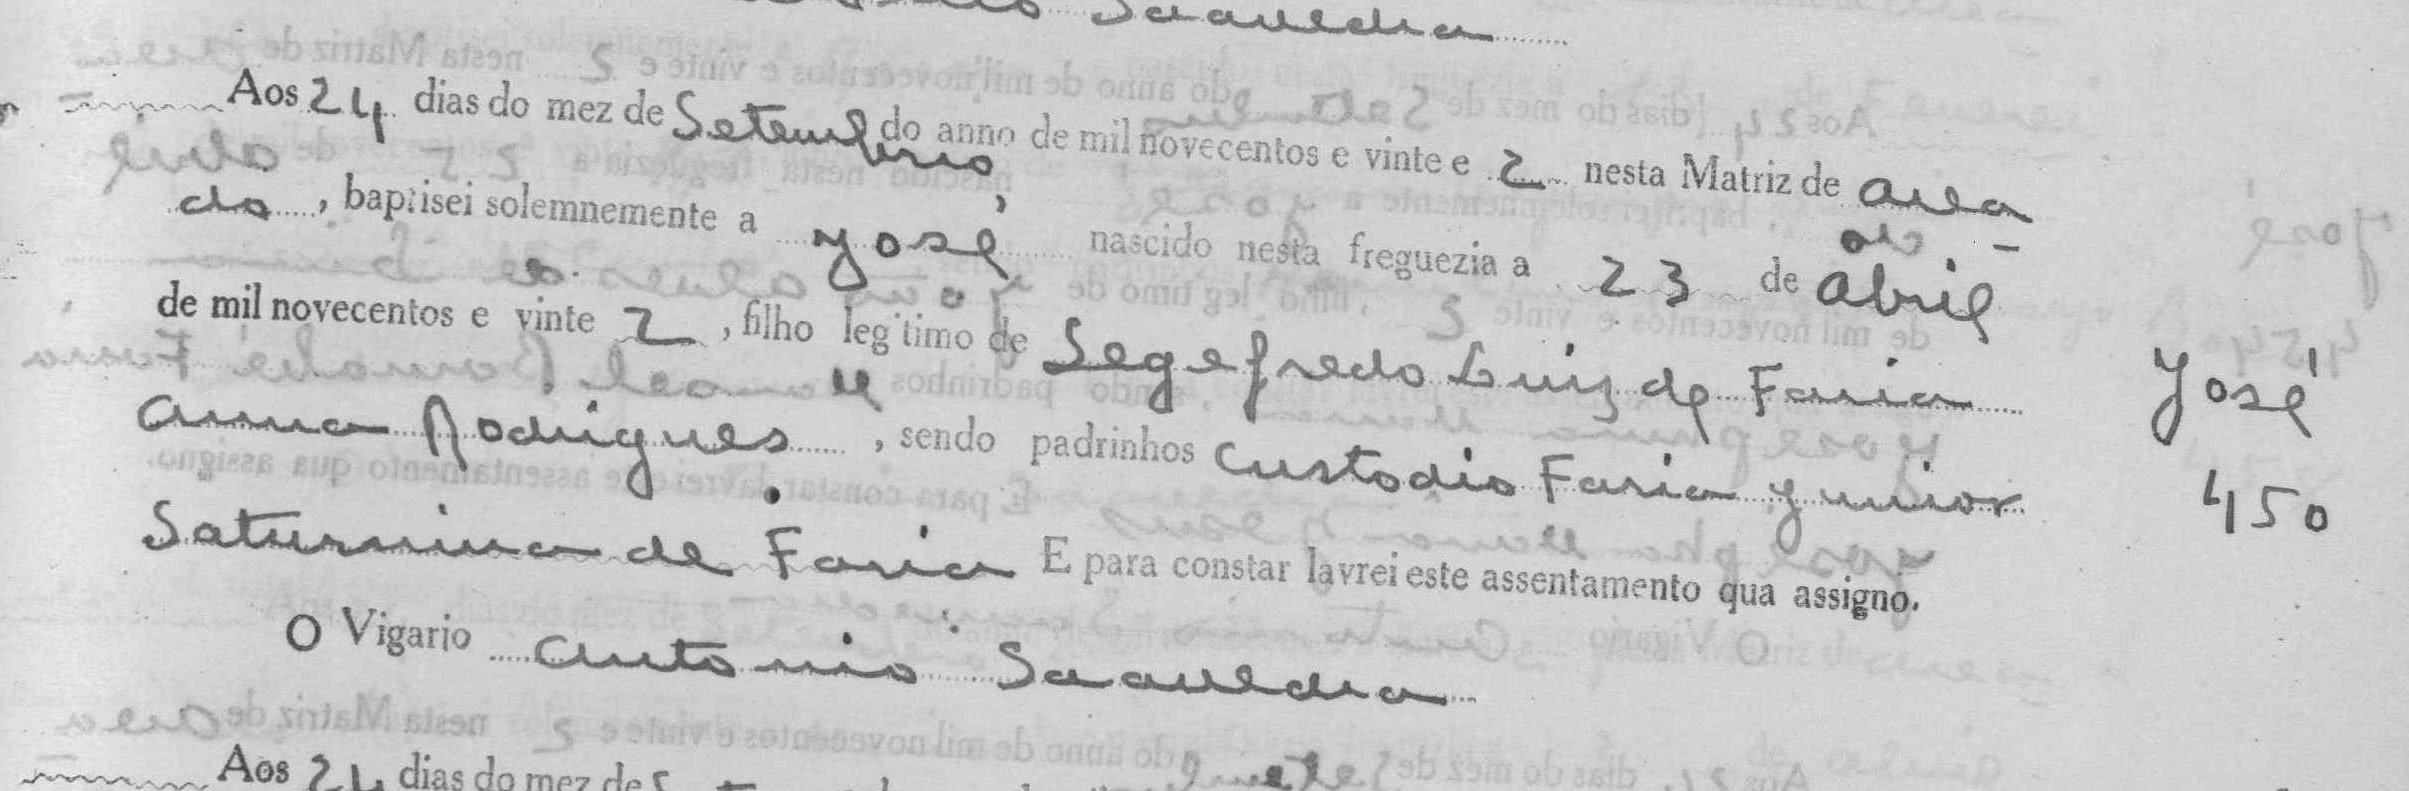 Saavedra
Aos 24 dias do mez de Setembro do anno de mil novecentos e vinte e 2 nesta Matriz de Area
do, baptisei solemnemente a José nascido nesta freguezia a 23 de Abril
de mil novecentos e vinte 2, filho legitimo de Segefredo Luiz de Faria
Anna Rodrigues, sendo padrinhos Custodio Faria Junior
José
Saturnina de Faria E para constar lavrei este assentamento qua assigno.
450
O Vigario Antonio Saavedra
Aos 24 dias do mez de